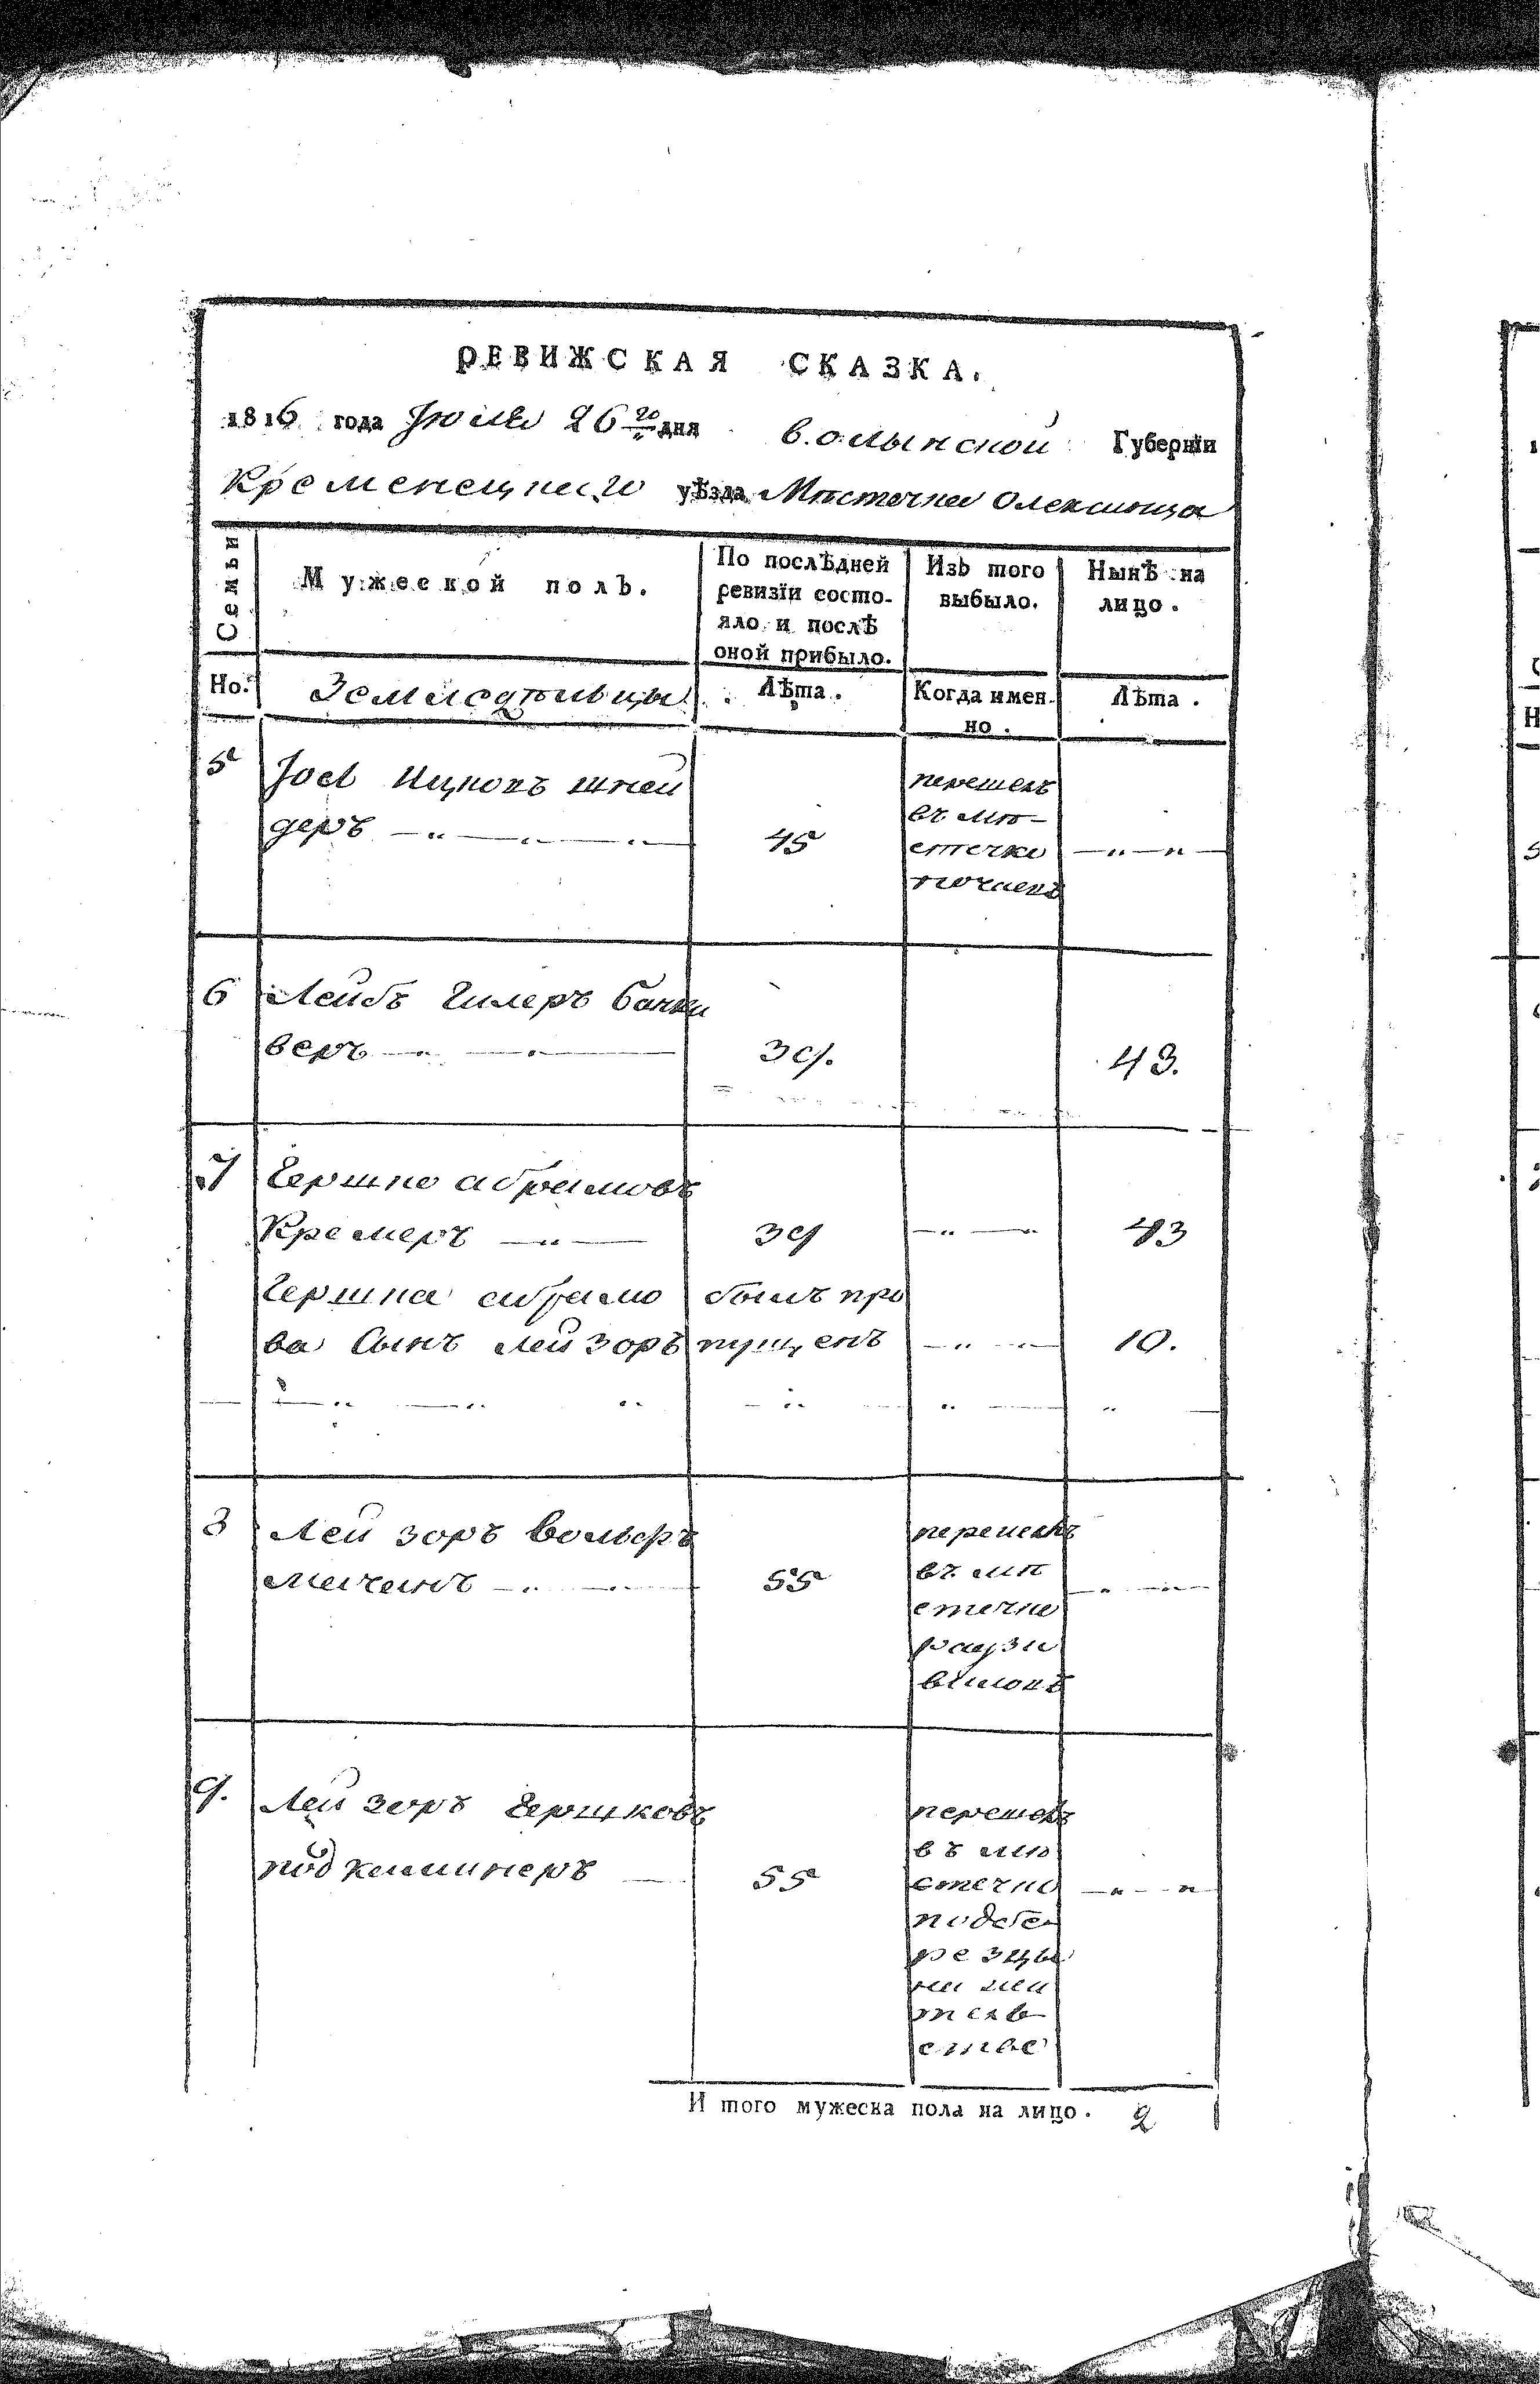 РЕВИЖСКАЯ СКАЗКА.
1816 года Июля 26 го дня Волынской Губернїи
Кременецкаго уѣзда Мѣстечка Олексинца
Семьи
Мужеской полъ.
По послѣдней ревизїи состо-
яло и послѣ
оной прибыло.
Изъ того
выбыло.
Нынѣ на
лицо.
Но.
Лѣта.
Когда имен-
но.
Лѣта.
5
Иоel Ицковъ шней
деръ
45
перешелъ
въ мѣ-
стечко
почаевъ
6
Лейбъ
веръ
39.
43.
7
Гершко абрамовъ
Кремеръ
39
43
Гершка абрамо
ва Сынъ Лейзоръ
былъ про
пущенъ
10.
8
Лейзоръ
55
перешелъ
въ мѣ
стечко
9.
Лейзоръ Гершковъ
подкаминеръ
55
перешелъ
въ мѣ
стечко
подбе
резцы
на жи
тель
ство
И того мужеска пола на лицо. 2